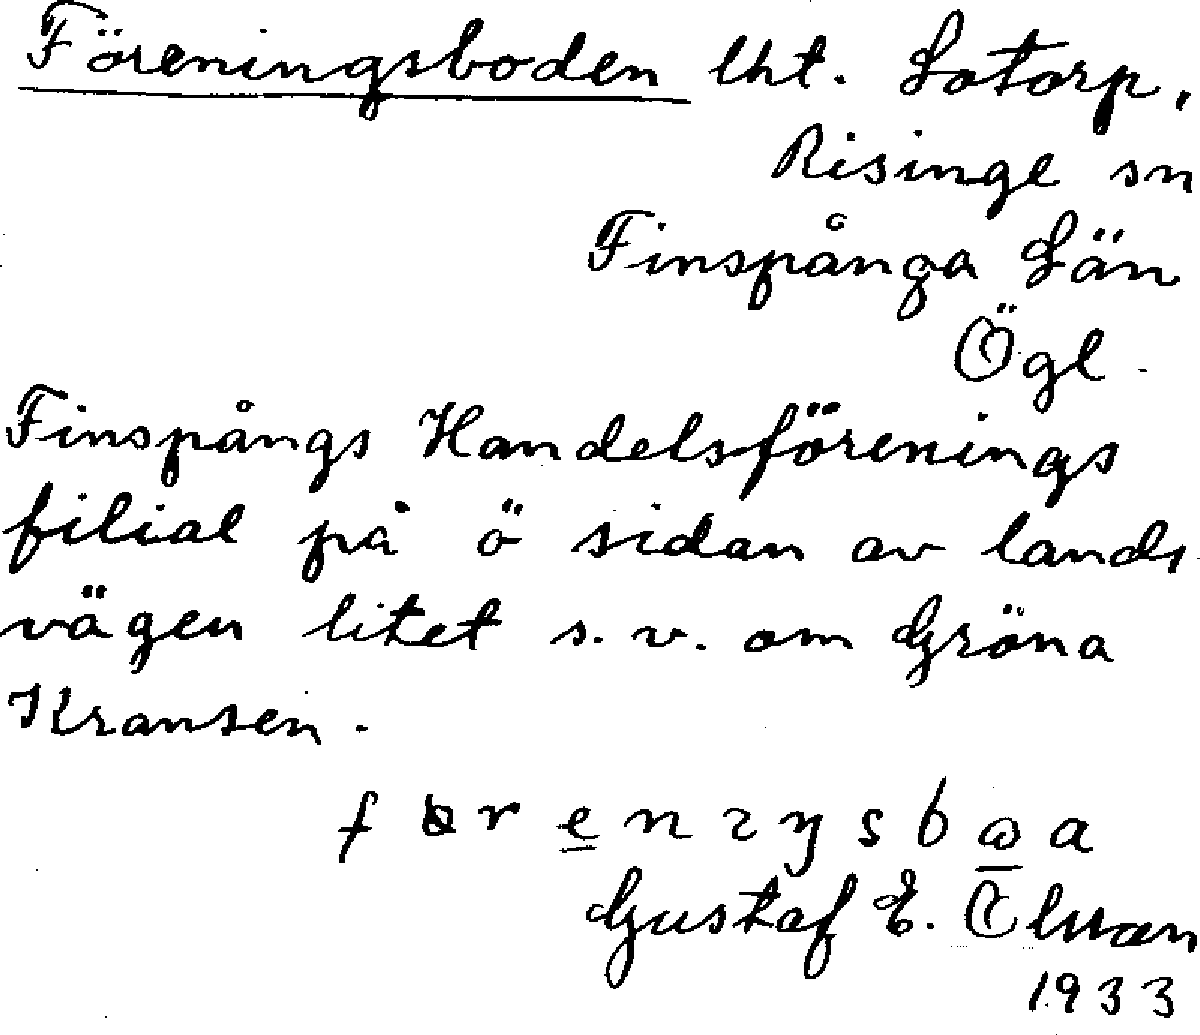 Föreningsboden lht. Lotorp,
Risinge sn
Finspånga Län
Ögl.
Finspångs Handelsförenings
filial på ö sidan av lands
vägen litet s.v. om Gröna
Kransen.
Gustaf E.
1933